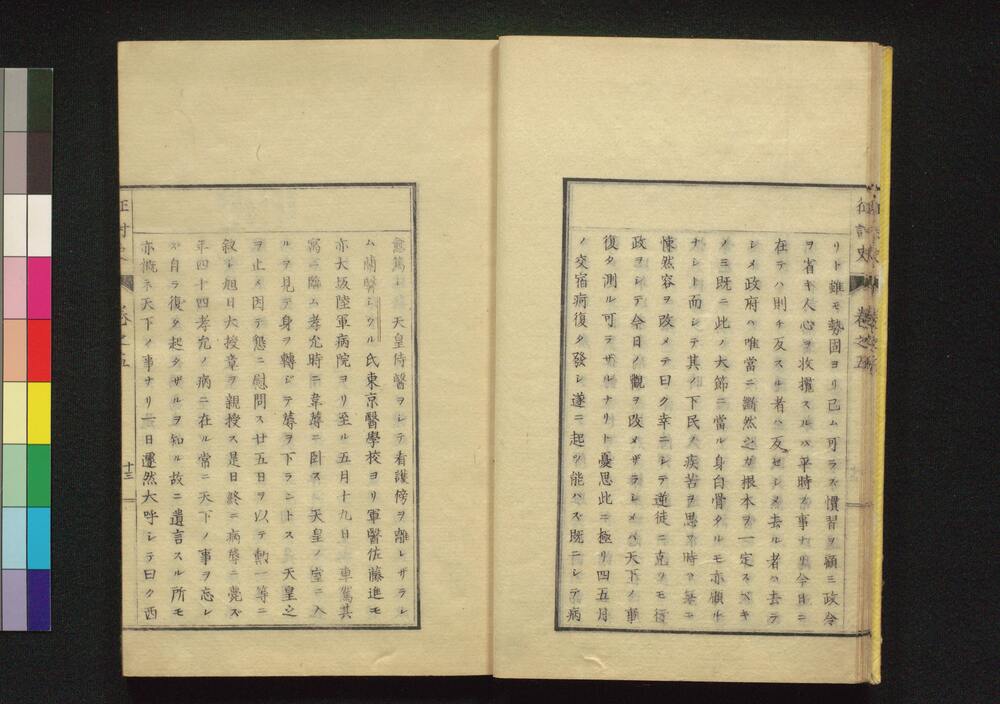 リト雖モ勢固ヨリ已ム可ラス慣習ヲ顧ミ政令
ヲ省キ人心ヲ收攬スルハ平時ノ事ナリ今日ニ
在テハ則チ反スル者ハ反セシメ去ル者ハ去ラ
シメ政府ハ唯當ニ斷然之カ根本ヲ一定スベキ
ノミ既ニ此ノ大節ニ當ル身白骨タルモ亦顧ル
ナシト而シテ其ノ下民ノ疾苦ヲ思フ時ハ每ニ
悚然容ヲ改メテ曰ク幸ニシテ逆徒ニ克ツモ
政ヲシテ今日ノ觀ヲ改メザラシメバ天下ノ事
復タ測ル可ラザルナリト憂思此ニ極リ四五月
ノ交宿痾復タ發シ遂ニ起ツ能ハズ既ニシテ病
愈篤シ天皇侍醫ヲシテ看護傍ヲ離レザラシ
ム蘭醫シウル氏東京醫學校ヨリ軍醫佐藤進モ
亦大坂陸軍病院ヨリ至ル五月十九日車駕其
寓ニ臨ム孝允時ニ葦蓐ニ臥ス天皇ノ室ニ入
ルヲ見テ身ヲ轉シテ蓐ヲ下ラントス天皇之
ヲ止メ因テ懇ニ慰問ス廿五日ヲ以テ勳一等ニ
叙シ旭日大授章ヲ親授ス是日終ニ病蓐ニ薨ズ
年四十四孝允ノ病ニ在ル常ニ天下ノ事ヲ忘レ
ズ自ラ復タ起タザルヲ知ル故ニ遺言スル所モ
亦概ネ天下ノ事ナリ一日遽然大呼シテ曰ク西
十三